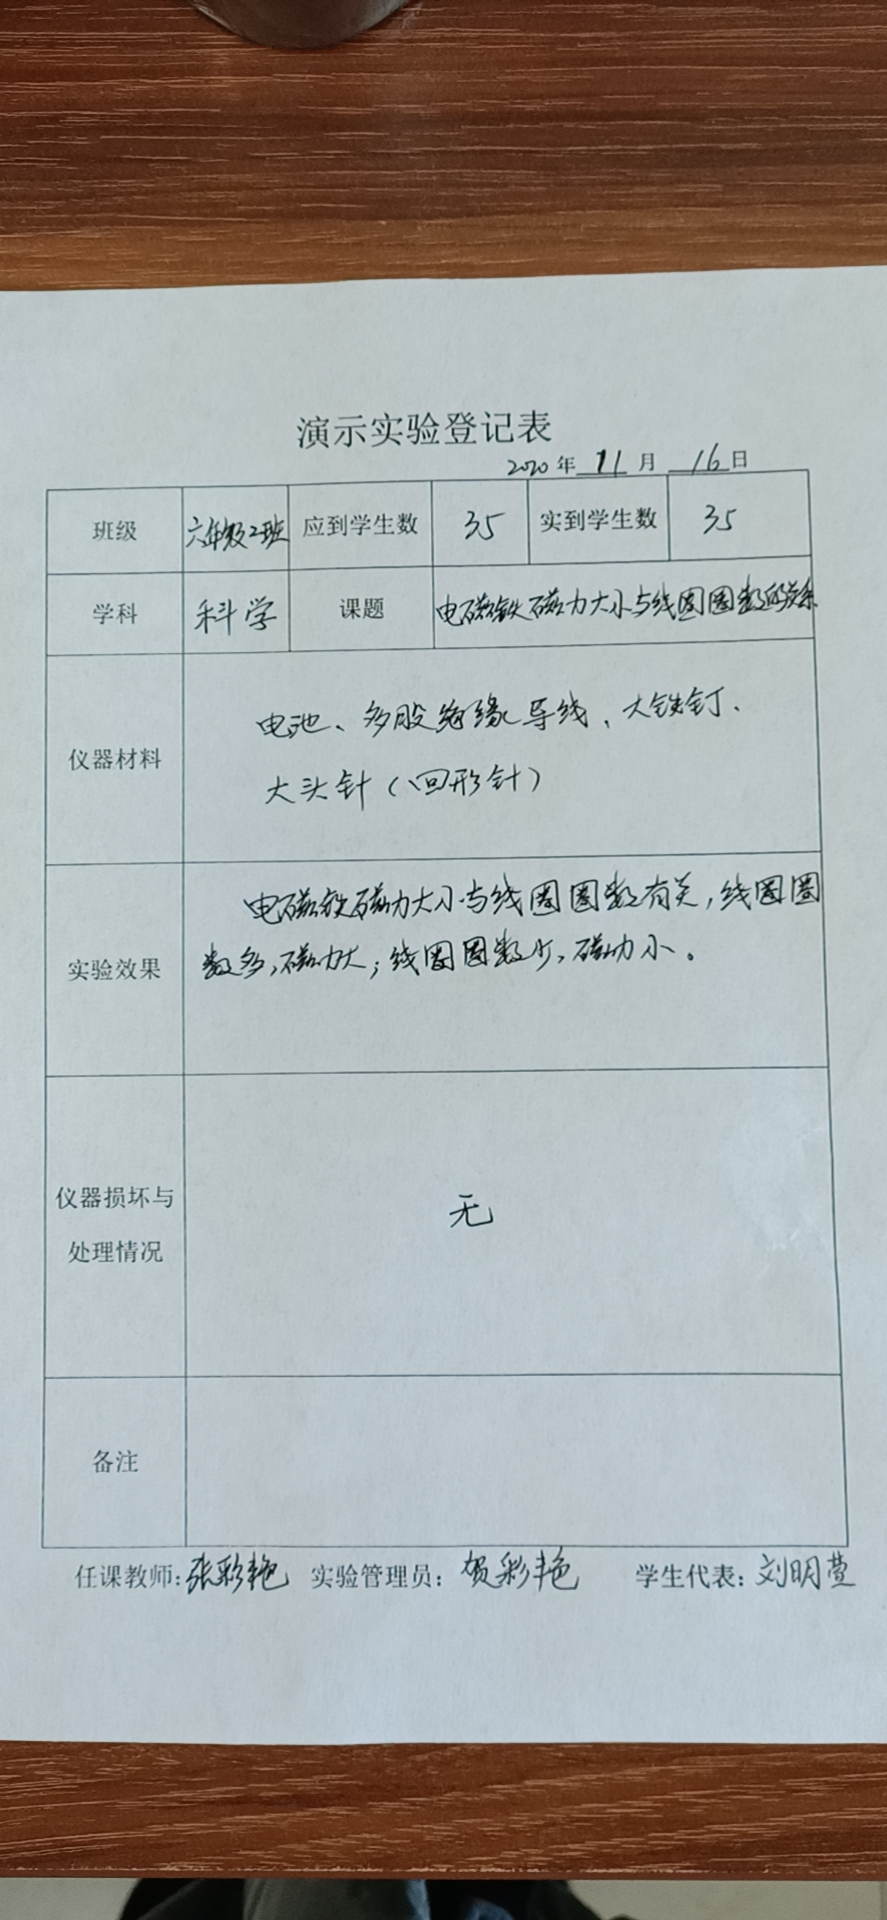 演示实验登记表
2020年 11 月 16 日
班级 六年级2班 应到学生数 35 实到学生数 35
学科 科学 课题 电磁铁磁力大小与线圈圈数的关系
仪器材料 电池、多股绝缘导线、大铁钉、
大头针（回形针）
电磁铁磁力大小与线圈圈数有关，线圈圈
实验效果 数多，磁力大；线圈圈数少，磁力小。
仪器损坏与
处理情况
无
备注
任课教师：张彩艳 实验管理员：贺彩艳 学生代表：刘明萱